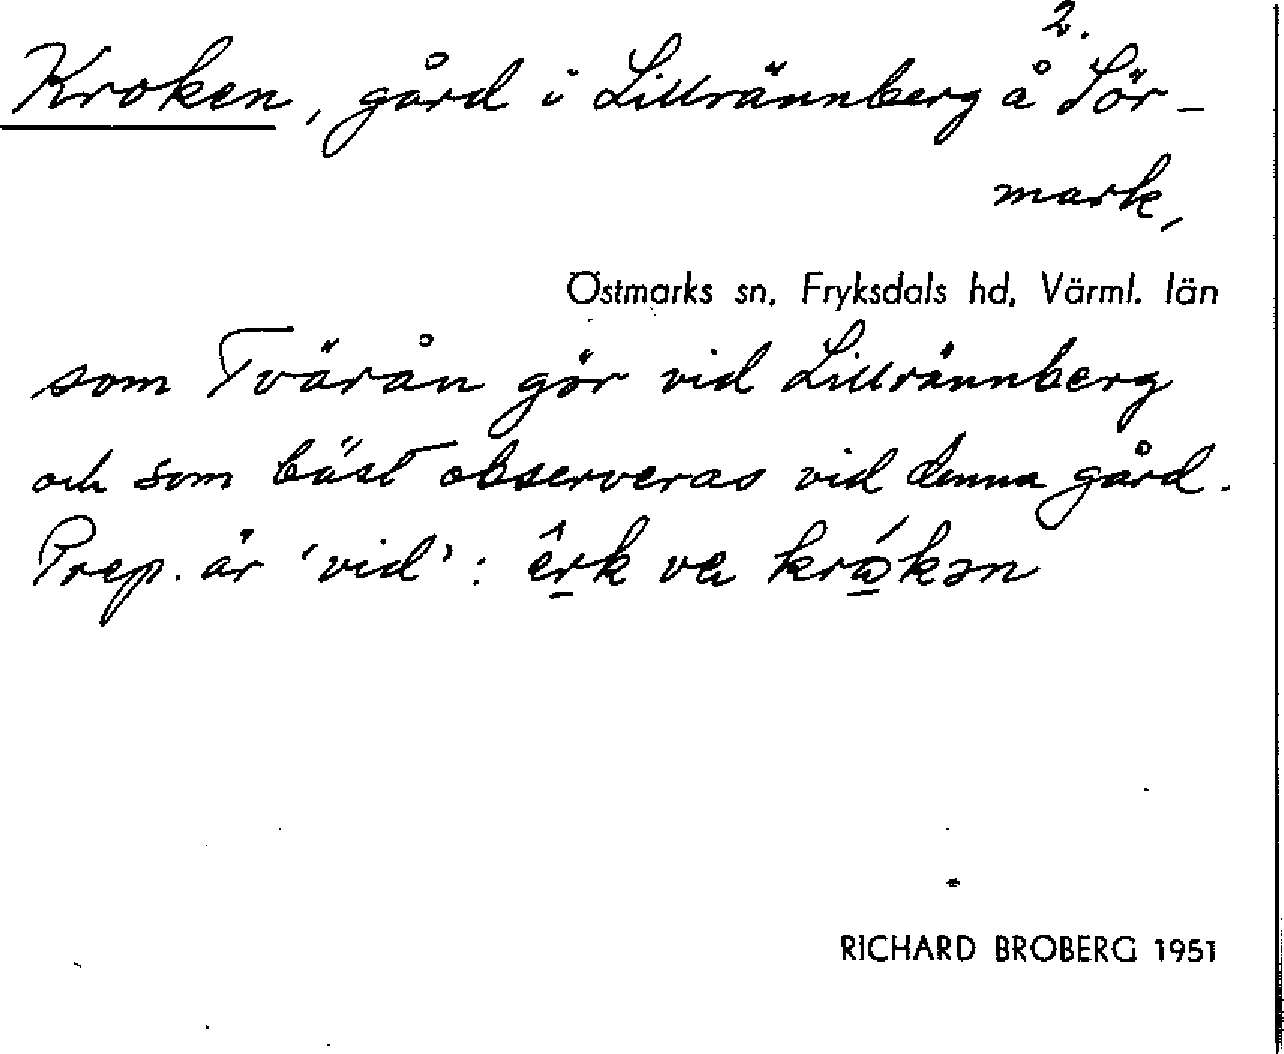 2.
Kroken, gård i Lillrännberg å Sör-
mark,
Östmarks sn, Fryksdals hd, Värml. län
som Tvärån gör vid Lillrännberg
och som bäst observeras vid denna gård.
Prep. är 'vid':
RICHARD BROBERG 1951